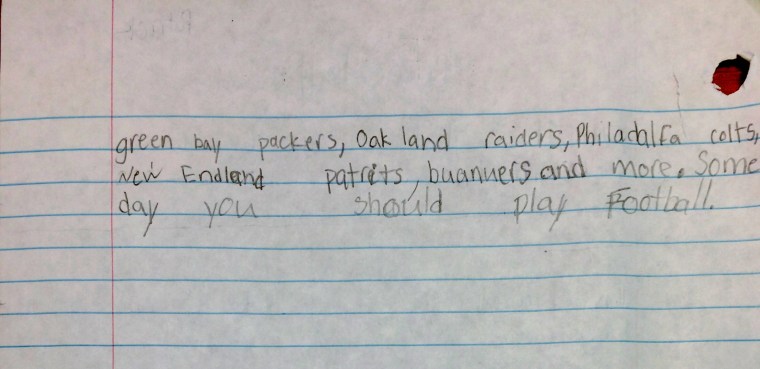 green bay packers, Oak land raiders, Philadalfa colts,
New Endland patrits, buanuers and more. Some
day you should play Football.